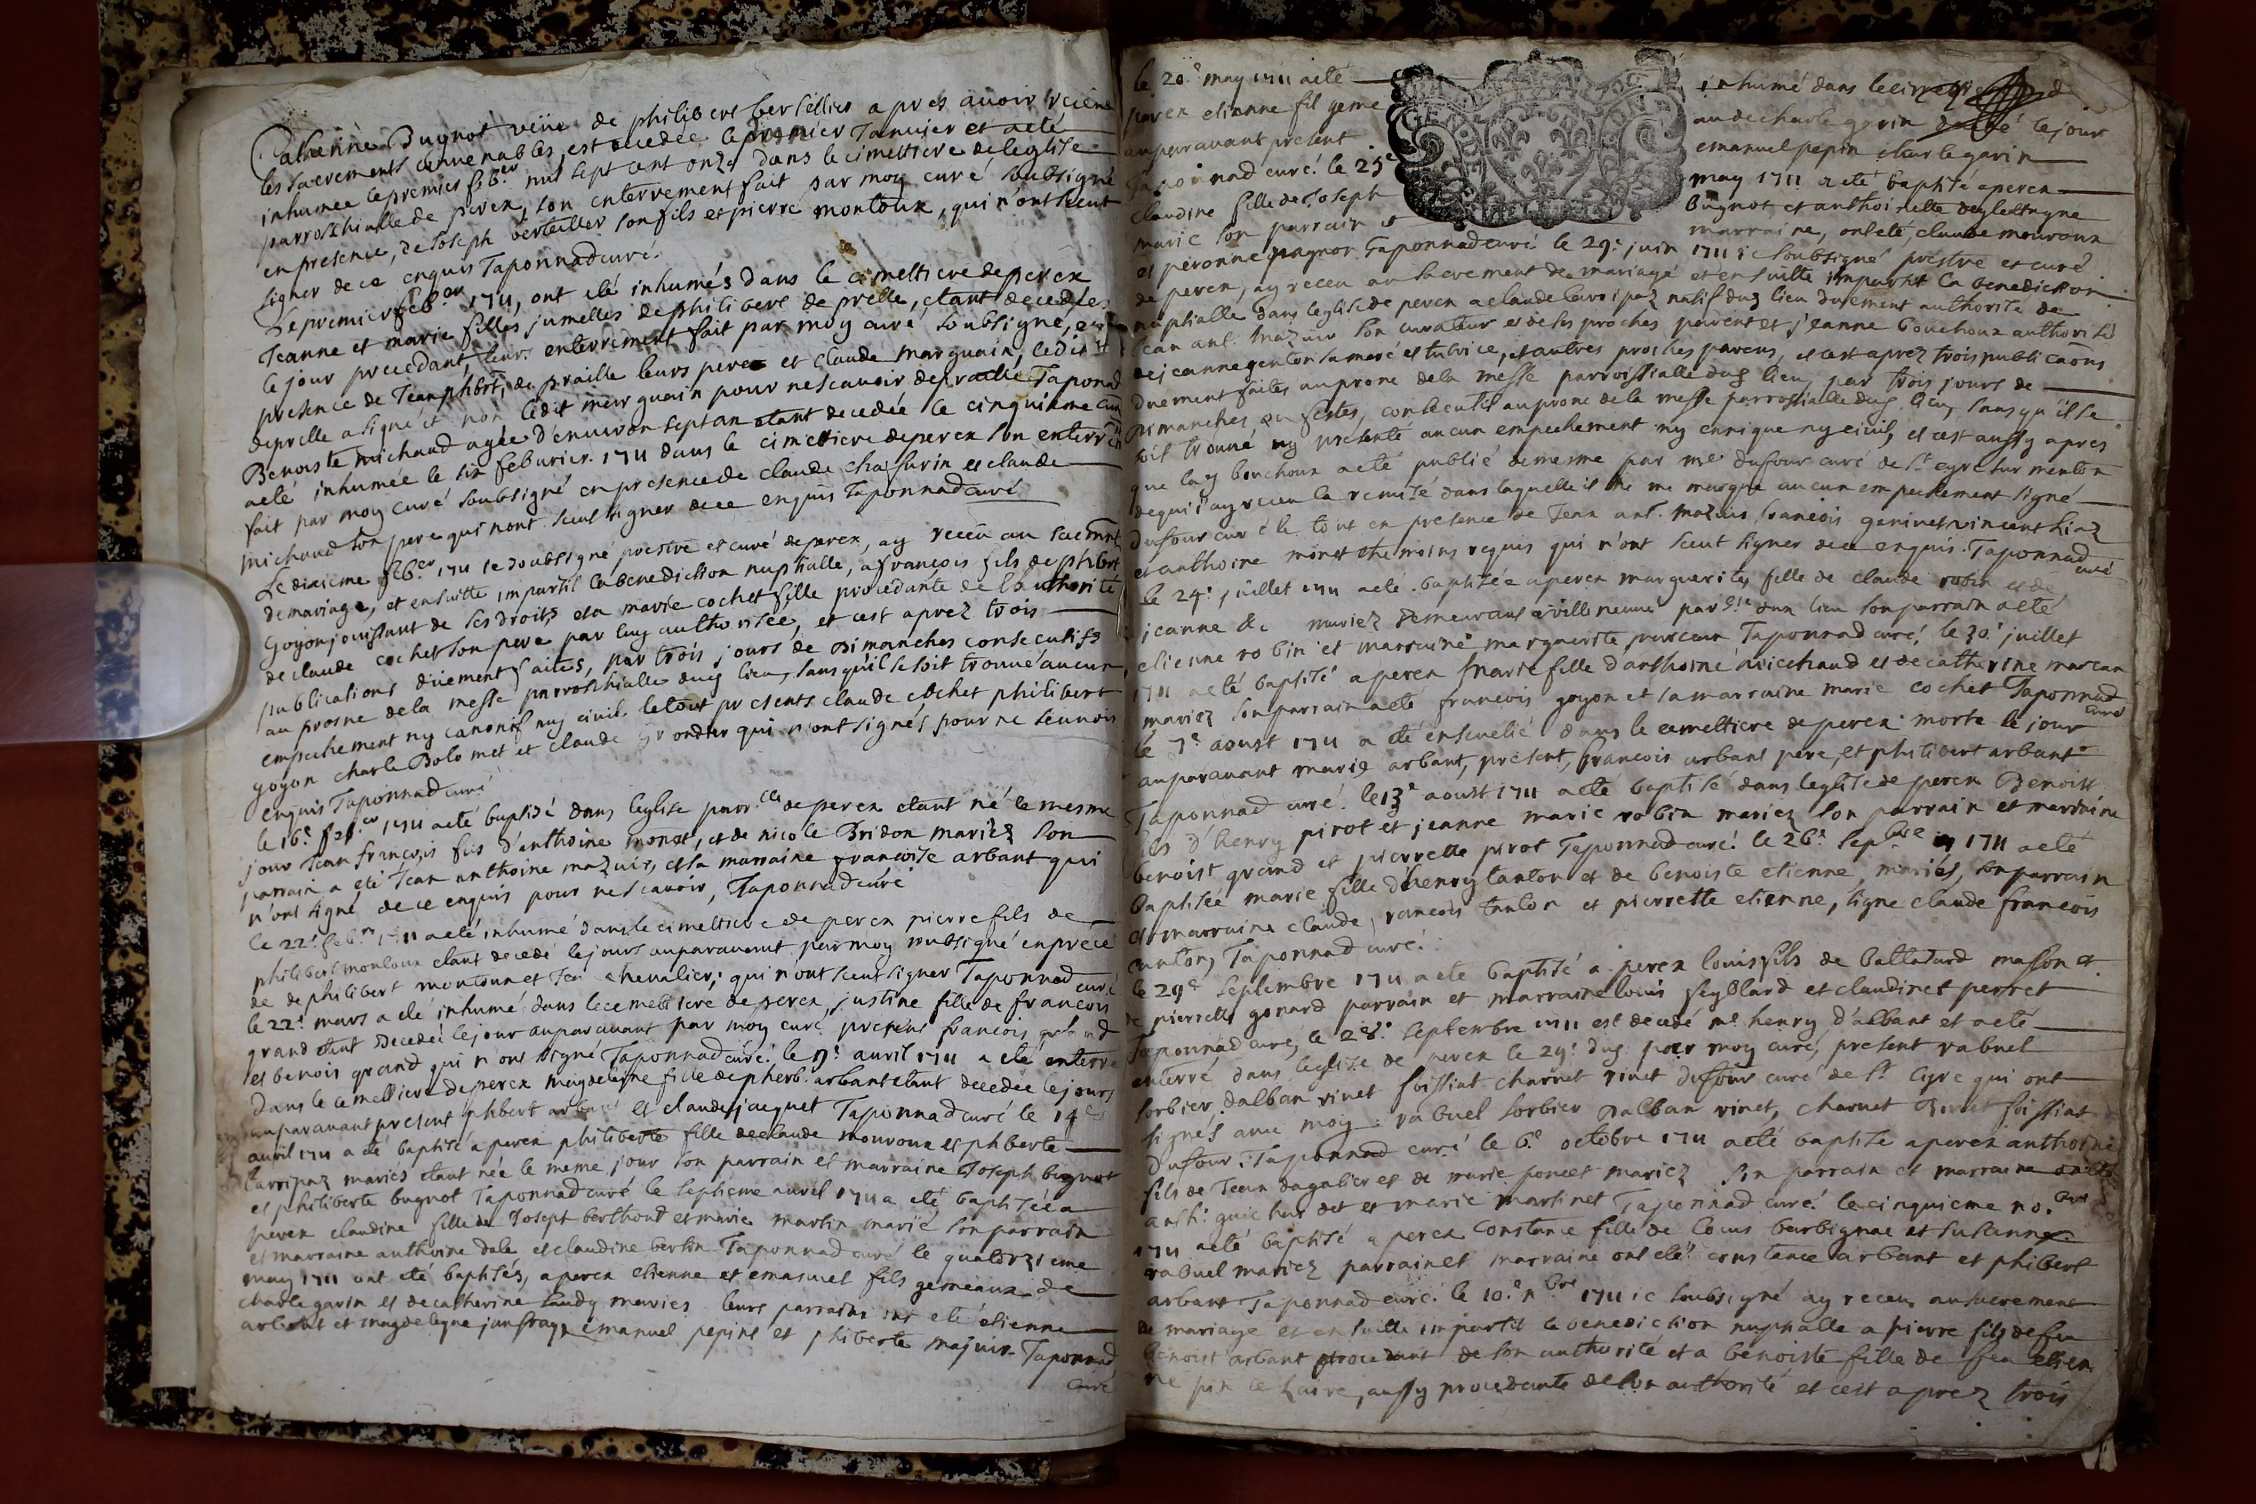 Catherine Bugnot veüve de philibert bertellier apres avoir receu
les sacrements convenables, est decedée le premier Janvier et a eté
inhumée le premier feb.er mil sept cent onze dans le cimettiere de leglise
parroschialle de perex, son enterrement fait par moy curé soubsigné
en presence, de Joseph berteiller son fils et pierre montoux, qui n'ont sceut
signer de ce enquis Taponnad curé.
Le premier feb.er 1711, ont eté inhumés dans le cimettiere de perex
Jeanne et marie filles jumelles de philibert de prelle, etant decedées
le jour precedant, leurs enterrement fait par moy curé soubsigné, en
presence de Jean phbert, de praille leurs pere et claude marguain, ledit
deprelle a signé et non ledit marguain pour ne scavoir Taponad
Benoiste michaud agée d'environ sept an etant decedée le cinquieme
a eté inhumée le six feburier 1711 dans le cimettiere de perex son enterr
fait par moy curé soubsigné en presence de claude chassurin et claude
michaud son pere qui n'ont sceut signer de ce enquis Taponnad curé
Le dixieme feb.er 1711 ie soubsigné prestre et curé de perex, ay receu au sacrmt
de mariage, et ensuitte impartit la benediction nuptialle, a françois fils de phibert
Goyon jouissant de ses droits et a marie cochet fille procedante de l'authorité
de claude cochet son pere par luy authorisée, et cest aprez trois
publications düement faites, par trois jours de dimanches consecutifs
au prosne de la messe parroschialle dud lieu, sans qu'il se soit trouvé aucun
empechement ny canonif ny civil le tout presents claude cochet philibert
goyon charle Bolomet et claude grondier qui n'ont signés pour ne scavoir
enquis Taponnad curé
le 16e feb.er 1711 a eté baptisé dans leglise parr.lle de perex etant né le mesme
jour Jean françois fils d'anthoine monet, et de nicole Bridon mariez son
parrain a eté Jean anthoine mazuir, et la marraine françoise arbant qui
n'ont signé de ce enquis pour ne scavoir, Taponnad curé
le 22e feb.er 1711 a eté inhumé dans le cimettiere de perex pierre fils de
philibert montoux etant decedé le jours auparavant par moy subsigné en préce
de de philibert montoux et Jean chevalier; qui n'ont sceut signer Taponnad curé
le 22e mars a eté inhumé dans le cemettiere de perex, justine fille de françois
grand etant decedée le jour auparavant par moy curé present francois grand
et benois grand qui n'ont signé Taponnad curé. le 9e avril 1711 a eté enterré
dans le cemettiere de perex magdeleyne fille de pherb. arbant etant decedée le jours
auparavant present phbert arbant et claude jacquet Taponnad curé le 14e
avril 1711 a eté baptisé a perex philiberte fille de claude mouroux et phberte
larripaz mariés etant née le meme jour son parrain et marraine Joseph bugnot
et philiberte bugnot Taponnad curé le septieme avril 1711 a eté baptisée a
perex claudine fille de Joseph berthoud et marie martin marié son parrain
et marraine anthoine dale et claudine bertin Taponnad curé le quatorzieme
may 1711 ont eté baptisés, a perex etienne et emanuel fils gemeaux de
charle gavin et de catherine landy mariés leurs parrains ont eté etienne
arbant et magdeleyne emanuel pepins et phiberte majuir Taponnad
curé
le 20e may 1711 a eté inhumé dans le
perex etienne fil geme au de charle gavin le jour
auparavant present emanuel pepin charle gavin
Taponnad curé. le 25e may 1711 a eté baptisé a perex
claudine fille de Joseph Bugnot et anthoinette
marie son parrain et marraine, ont eté, claude mouroux
et peronne pagnor Taponnad curé le 29e juin 1711 ie soubsigné prestre et curé
de perex, ay receu au sacrement de mariage et en suitte impartit la benediction
nuptialle dans leglise de perex a claude larripaz natif dud lieu duement authorité de
jean ant. mazuir son curateur et de ses proches parent et jeanne bouchoux authorisé
de jeanne genton sa mere et tutrice, et autres proches parens, et cest aprez trois publicaons
duement faites au prone de la messe parroissialle dud lieu, par trois jours de
dimanches ou festes, consecutif au prone de la messe parrossialle dud. lieu, sans qu'il se
soit trouvé ny presenté aucun empechement ny cannique ny civil, et cest aussy apres
que lay bouchoux a eté publié de mesme par mre dufour curé de St cyre sur menton
dequi j'ay receu la remise dans laquelle il ne me marque aucun empechement signé
dufour curé le tout en presence de Jean ant. mazuir francois geninet vincent
et anthoine monet themoins requis qui n'ont sceut signer de ce enquis. Taponnad curé
le 24e juillet 1711 a eté baptisée a perex marguerite fille de claude robin et de
jeanne mariez demeurans a villeneuve par dud lieu son parrain a eté
etienne robin et marraine marguerite Taponnad curé, le 30e juillet
1711 a eté baptisé a perex marie fille danthoine michaud et de catherine
mariez son parrain a eté françois goyon et sa marraine marie cochet Taponnad
curé
le 7e aoust 1711 a eté ensevelié dans le cemettiere de perex morte le jour
auparavant marie arbant, present, francois arbant pere, et philibert arbant
Taponnad curé. le 13e aoust 1711 a eté baptisé dans leglise de perex Benoist
fils d'henry pirot et jeanne marie robin mariez son parrain et marraine
benoist grand et pierrette pirot Taponnad curé. le 26e sep.bre 1711 a eté
baptisée marie fille d'henry tanton et de benoiste etienne, mariés, son parrain
et marraine claude françois tanton et pierrette etienne, signe claude francois
tanton, Taponnad curé.
le 29e septembre 1711 a eté baptisé a perex louis fils de battatard masson et
de pierrette gonard parrain et marraine louis seyblard et claudinet perret
Taponnad curé, le 28e septembre 1711 est decedé mr henry d'alban et a eté
enterré dans leglise de perex le 29e dud. par moy curé, present rabuel
sorbier dalban vinet foissiat charvet vinet dufour curé de St Cyre qui ont
signés avec moy. rabuel sorbier dalban vinet, charvet vinet foissiat
dufour. Taponnad curé le 6e octobre 1711 a eté baptisé a perex anthoine
fils de Jean dagalier et de marie poncet mariez son parrain et marraine
anth. guichardet et marie martinet Taponnad curé. le cinquieme no.bre
1711 a eté baptisé a perex constance fille de louis barbignac et susanne
rabuel mariez parrain et marraine ont eté constance arbant et phibert
arbant Taponnad curé. le 10e n.bre 1711 ie soubsigné ay receu au sacrement
de mariage et ensuitte impartit la benediction nuptialle a pierre fils de feu
benoist arbant procedant de son authorité et a benoiste fille de feu etien
ne aussy procedante de son authorité et cest aprez trois